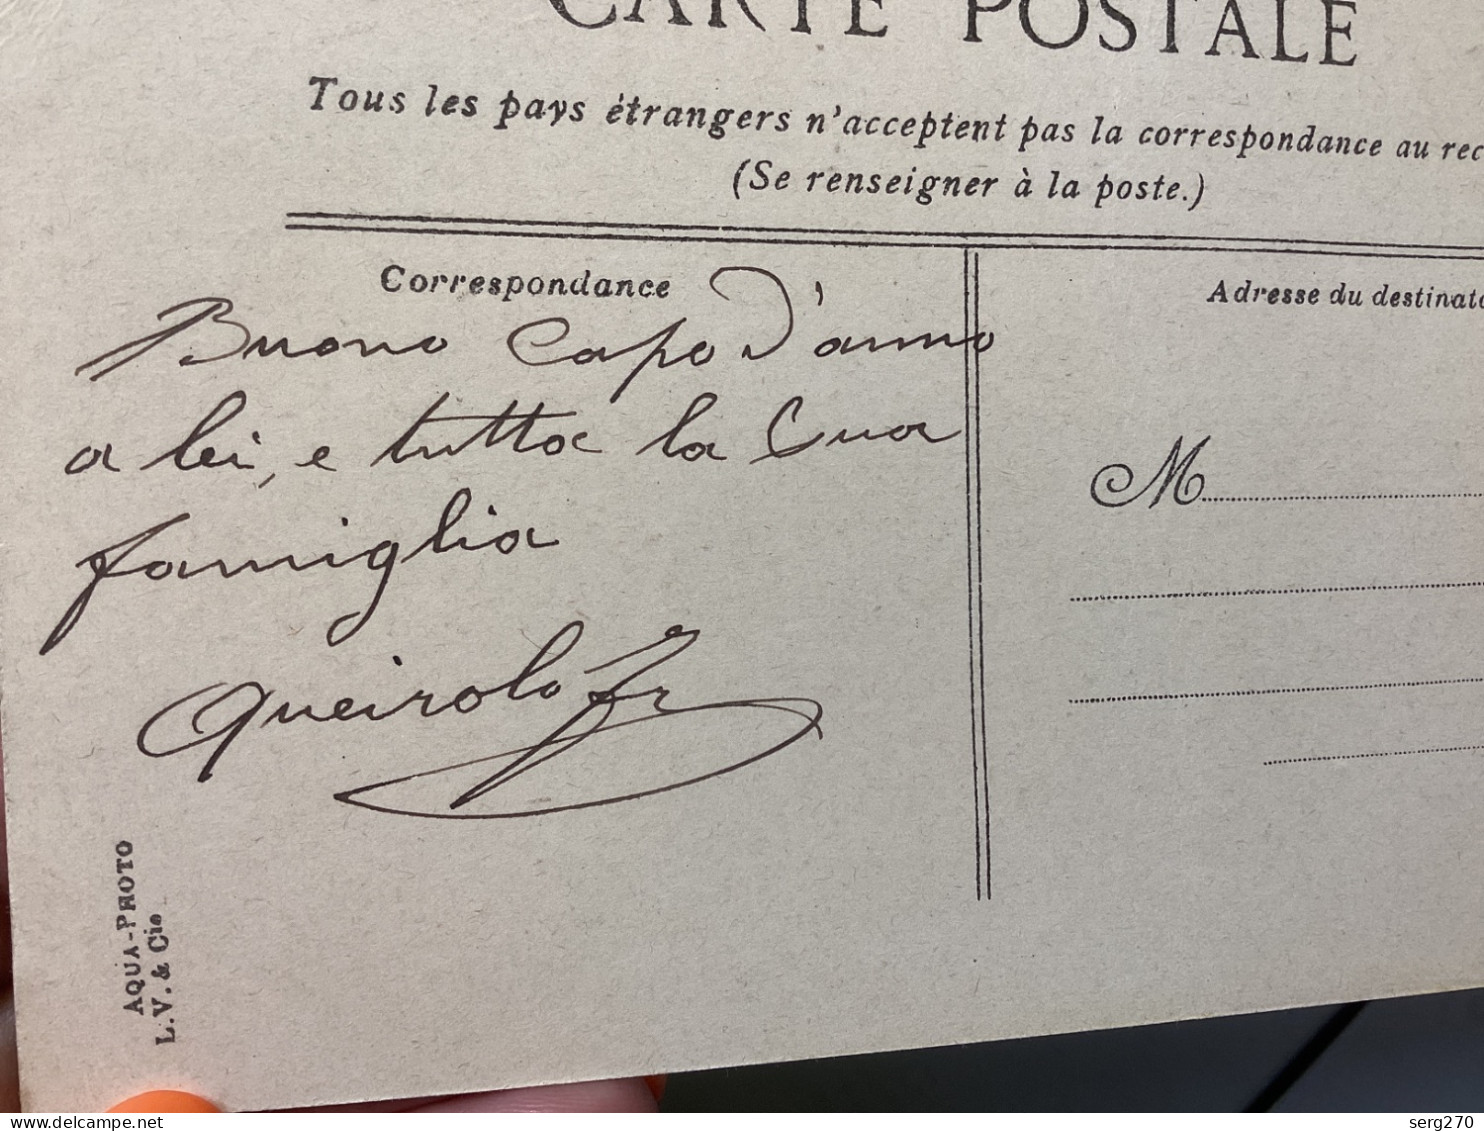 CARTE POSTALE
Tous les pays étrangers n'acceptent pas la correspondance au rec
(Se renseigner à la poste.)
Correspondance
Adresse du destinata
Buono Capo d'anno
a lei, e tutta la Sua
famiglia
Queirolo Fr
M
AQUA-PHOTO
L.V. & Cie
delcampe.net
serg270